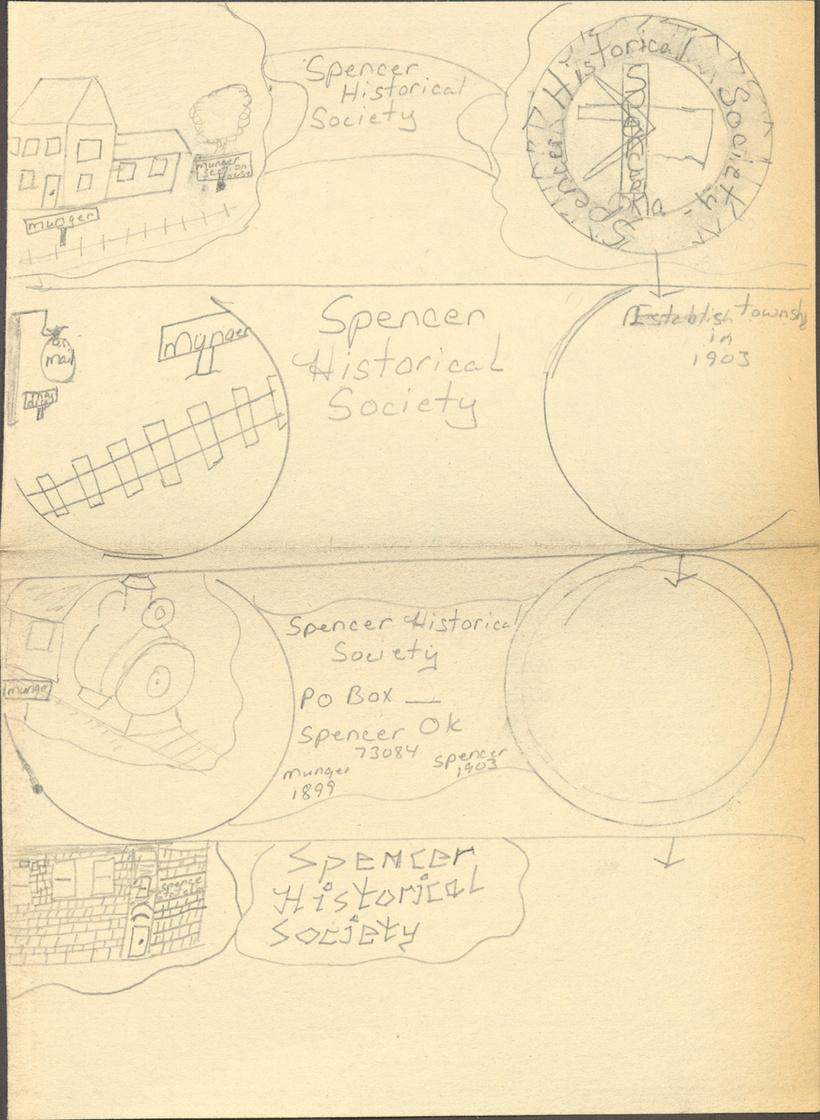 Spencer
Historical
Society
Munger
Section
House
munger
Spencer Historical Society
Spencer
Okla
Munger
mail
Spencer
Historical
Society
Establish township
in
1903
Spencer Historical
Society
PO Box __
Spencer Ok
73084
munger
1899
Spencer
1903
munger
Spencer
Historical
Society